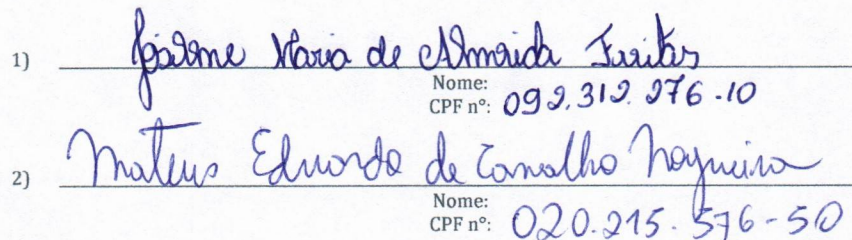 1) Josilme Maria de Almeida Freitas
Nome:
CPF nº: 092.312.276-10
2) Mateus Eduardo de Carvalho Nogueira
Nome:
CPF nº: 020.215.576-50